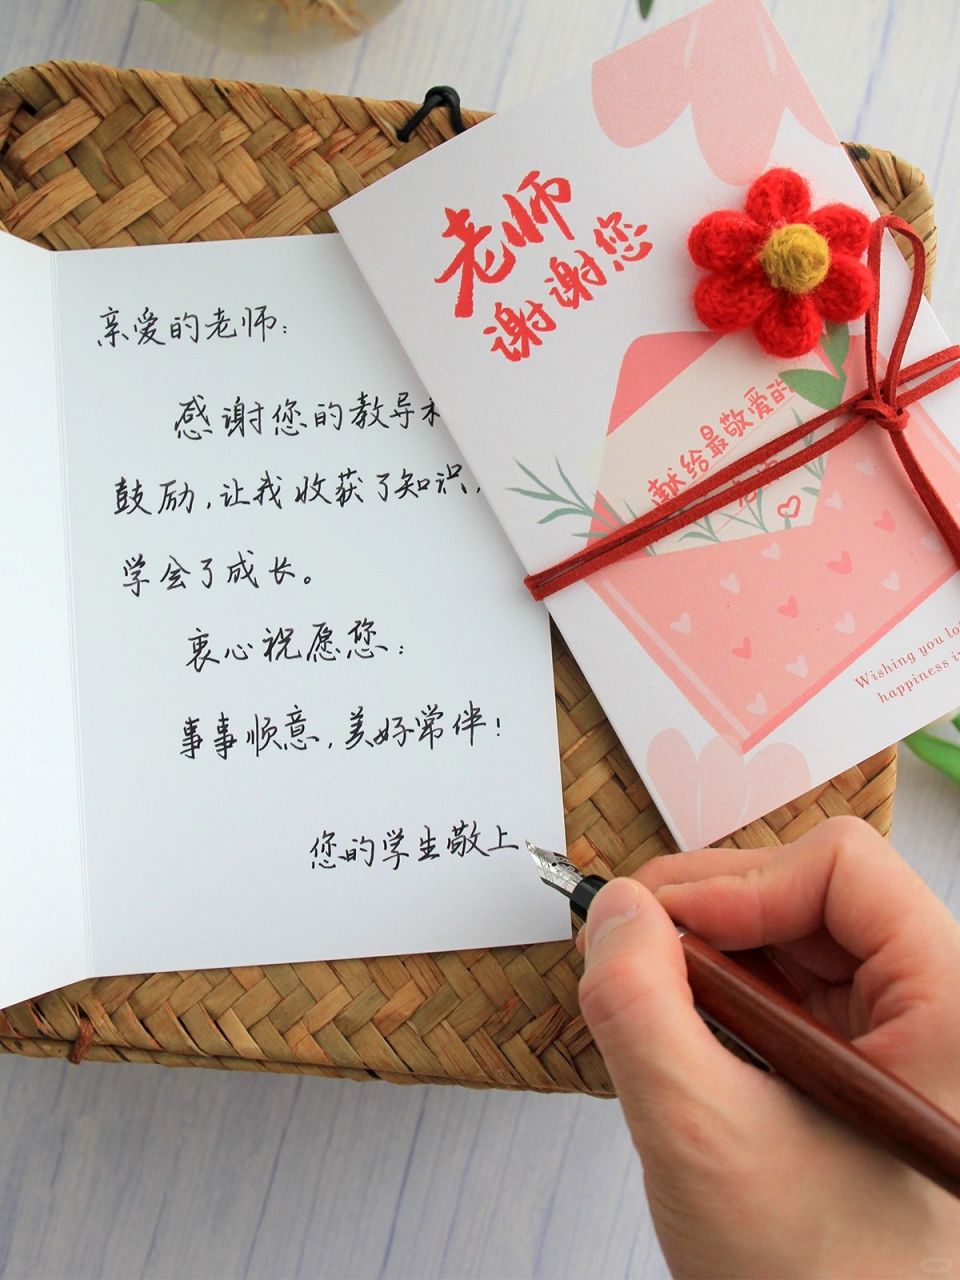 亲爱的老师：
感谢您的教导
鼓励，让我收获了知识，
学会了成长。
衷心祝愿您：
事事顺意，美好常伴！
您的学生敬上
老师
谢谢您
献给最敬爱的
Wishing you
happiness